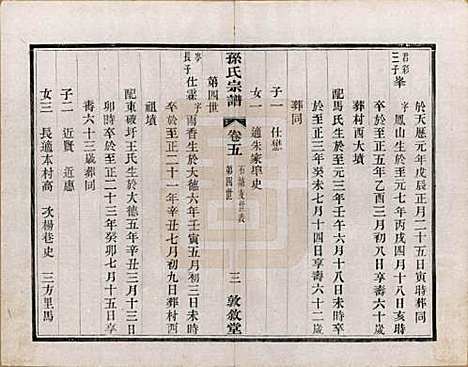 於天歷元年戊辰正月二十二日寅時葬同
君彩三子
峯
字鳳山生於至元七年丙戌四月十八日亥時
卒於至正五年乙酉三月二十八日享壽六十歲
葬村西大壙
配馬氏生於至元三年壬午六月十八日未時
卒於至正三年癸未七月十四日享壽六十二歲
葬同
子一 仕懋
女一 適朱家埠史
孫氏宗譜
卷五
第四世
三
敦敘堂
第四世
亨長子
仕霖
字雨香生於大德六年壬寅五月初三日未時
卒於至正二十一年辛丑七月初九日葬村西
祖墳
配東破圩王氏生於大德五年辛丑三月十三日
卯時卒於至正二十三年癸卯七月十五日享
壽六十三歲葬同
子二 近賢 近惠
女三 長適本村高 次楊巷史 三方里馬